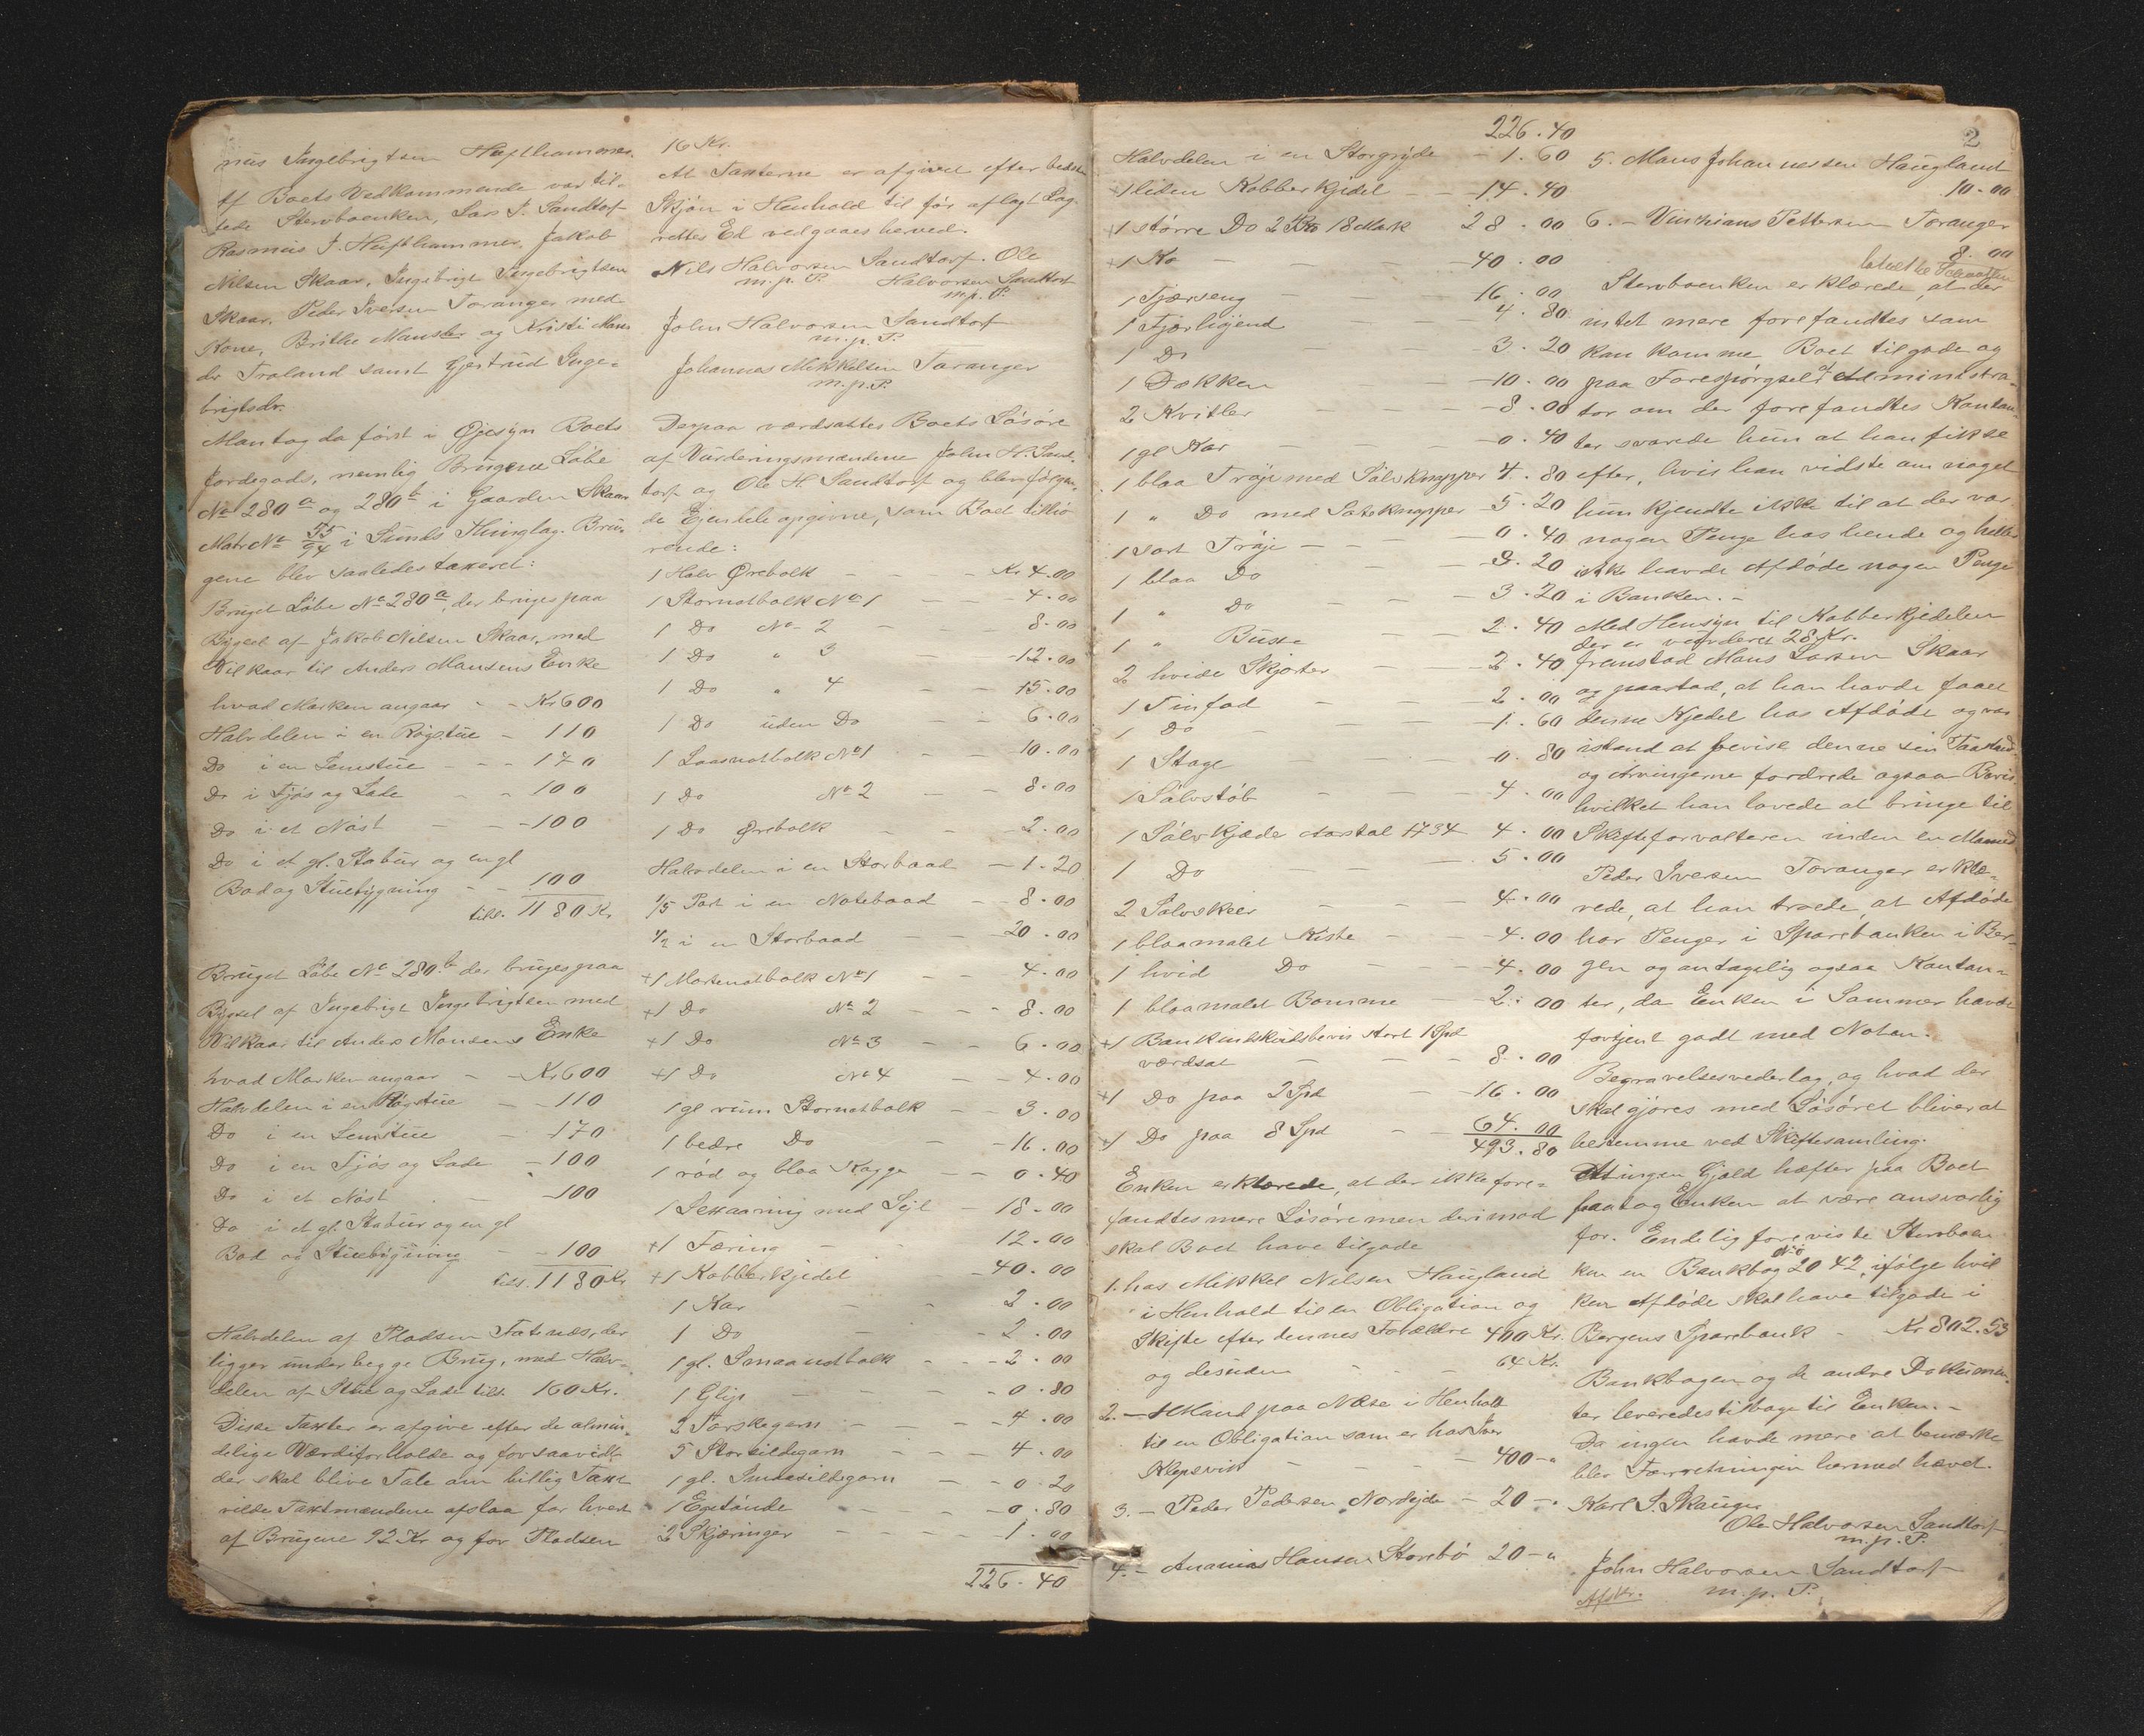 nus Ingebrigtsen Hufthammer.
Af Boets Vedkommende var til-
stede Stervboenken, Lars J. Sandtorf
Rasmus J. Hufthammer, Jakob
Nilsen Skaar, Ingebrigt Ingebrigtsen
Skaar. Peder Iversen Toranger med
Kone, Brithe Mansdr og Kristi Mans
dr Troland samt Gjertrud Inge-
brigtsdr.
Man tog da först i Øjesyn Boets
Jordegods, nemlig Brugene Löbe
No 280a og 280b i Gaarden Skaar
Matr No 55/94 i Sunds Thinglag. Bru-
gene blev saaledes taxeret:
Bruget Löbe No 280a, der bruges paa
Bygsel af Jakob Nilsen Skaar, med
Vilkaar til Anders Monsens Enke
hvad Marken angaar - - Kr 600
Halvdelen i en Røgstue - 110
Do i en Lemstue - - - 170
Do i Fjös og Lade - - 100
Do i et Nöst - - - 100
Do i et gl. Stabur og en gl
Bod og Stuebygning - - 100
tils. 1180 Kr.
Bruget Löbe No 280b der bruges paa
Bygsel af Ingebrigt Ingebrigtsen med
Vilkaar til Anders Monsens Enke
hvad Marken angaar - - Kr 600
Halvdelen i en Røgstue - 110
Do i en Lemstue - 170
Do i en Fjös og Lade - 100
Do i et Nöst - 100
Do i et gl. Stabur og en gl
Bod og Stuebygning - - 100
tils. 1180 Kr
Halvdelen af Pladsen Totenæs, der
ligger under begge Brug, med Halv-
delen af Stue og Lade tils. 160 Kr.
Disse Taxter er afgive efter de almin-
delige Værdiforholde og forsaavidt
der skal blive Tale om billig Taxt
vilde Taxtmændene afslaa for hvert
af Brugene 92 Kr og for Pladsen
16 Kr.
At Taxterne er afgivet efter bedste
Skjön i Henhold til för aflagt Lag-
rettes Ed vedgaaes herved.
Nils Halvorsen Sandtorf. Ole
m. p. P. Halvorsen Sandtorf
m. p. P.
John Halvorsen Sandtorf
m. p. P.
Johannes Mikkelsen Toranger
m. p. P.
Derpaa værdsattes Boets Lösöre
af Vurderingsmændene John H. Sand-
torf og Ole H. Sandtorf og blev følgen-
de Ejendele opgivne, som Boet tilhö-
rende:
1 Halv Ørebolk - - - Kr 4.00
1 Stornotbolk No 1 - - 4.00
1 Do No 2 - - 8.00
1 Do " 3 - - 12.00
1 Do " 4 - - 15.00
1 Do uden Do - - 6.00
1 Laasnotbolk No 1 - - 10.00
1 Do No 2 - - 8.00
1 Do Ørebolk - - 2.00
Halvdelen i en Storbaad - 1.20
1/5 Part i en Notebaad - 8.00
1/2 i en Storbaad - - 20.00
+1 Mortenotbolk No 1 - - 4.00
+1 Do No 2 - - 8.00
+1 Do No 3 - - 6.00
+1 Do No 4 - - 4.00
1 gl rum Stornotbolk - - 3.00
1 bedre Do - - 16.00
1 röd og blaa Kagge - - 0.40
1 Sexaaring med Sejl - 18.00
+1 Færing - - 12.00
+1 Kobberkjedel - 40.00
1 Kar - - 2.00
1 Do - - 2.00
1 gl. Smaanotbolk - - 2.00
1 Glip - - - 0.80
2 Torskegarn - - - 4.00
5 Storsildegarn - - - 4.00
1 gl. Smaasildegarn - - 0.20
1 Egetönde - - - 0.80
2 Skjæringer - - - 1.00
226.40
2
226.40
Halvdelen i en Storgryde - 1.60
+1 liden Kobberkjedel - - 14.40
+1 större Do 2 Kr 18 Mark 28.00
+1 Ko - - 40.00
1 Fjærseng - - 16.00
1 Fjærhøjend - - 4.80
1 Do - - 3.20
1 Dokken - - 10.00
2 Kvitler - - 8.00
1 gl Kar - - 0.40
1 blaa Tröje med Sölvknapper 4.80
1 " Do med Sateknapper 5.20
1 sort Tröje - - 0.40
1 blaa Do - - 3.20
1 " Do - - 3.20
1 " Buxe - - 2.40
2 hvide Skjorter - - 2.40
1 Tinfad - - 2.00
1 Do - - 1.60
1 Stage - - 0.80
1 Sölvstöb - - 4.00
1 Sölvkjæde Aarstal 1734 4.00
1 Do - - 5.00
2 Sölvskeer - - 4.00
1 blaamalet Kiste - - 4.00
1 hvid Do - - 4.00
1 blaamalet Bomme - - 2.00
+1 Bankindskudsbevis stort 1 Spd
værdsat - - 8.00
+1 Do paa 2 Spd - 16.00
+1 Do paa 8 Spd - 64.00
493.80
Enken erklærede, at der ikke fore-
fandtes mere Lösöre men derimod
skal Boet have tilgode
1. hos Mikkel Nilsen Haugland
i Henhold til en Obligation og
Skifte efter dennes Forældre 400 Kr.
og desuden - - 64 Kr.
2. - Mand paa Næse i Henhold
til en Obligation som er hos Iver
Klepsvik - - 400 - "
3. - Peder Pedersen Nordejde - 20 - "
4. - Ananias Hansen Storebö 20 - "
5. Mons Johannessen Haugland
10.00
6. - Vintzians Pettersen Toranger
8.00
Stervboenken erklærede, at der
intet mere forefandtes som
kan komme Boet tilgode og
paa Forespörgsel af Administra-
tor om der forefandtes Kontan-
ter svarede hun at han fik se
efter, hvis han vidste om noget
hun kjendte ikke til at der var
nogen Penge hos hende og heller
ikke havde Afdöde nogen Penge
i Banken. -
Med Hensyn til Kobberkjedelen
der er vurderet 28 Kr.
fremstod Mons Larsen Skaar
og paastod, at han havde faaet
denne Kjedel hos Afdöde og var
istand at bevise denne sin Paastand
og Arvingerne fordrede ogsaa Bevis
hvilket han lovede at bringe til
Skifteforvalteren inden en Maaned
Peder Iversen Toranger erklæ-
rede, at han troede, at Afdöde
har Penger i Sparebanken i Ber-
gen og antagelig ogsaa Kontan-
ter, da Enken i Sommer havde
fortjent godt med Noten.
Begravelsesvederlag, og hvad der
skal gjöres med Lösöret bliver at
bestemme ved Skiftesamling.
At ingen Gjæld hæfter paa Boet
paatog Enken at være ansvarlig
for. Endelig foreviste Stervboen-
ken en Bankbog No 2042, ifölge hvil
ken Afdöde skal have tilgode i
Bergens Sparebank - Kr 802.53
Bankbogen og de andre Dokumen-
ter leveredes tilbage til Enken. -
Da ingen havde mere at bemærke
blev Forretningen hermed hævet.
Karl J. Skauge
Ole Halvorsen Sandtorf
m. p. P.
John Halvorsen Sandtorf
Afskr. m. p. P.